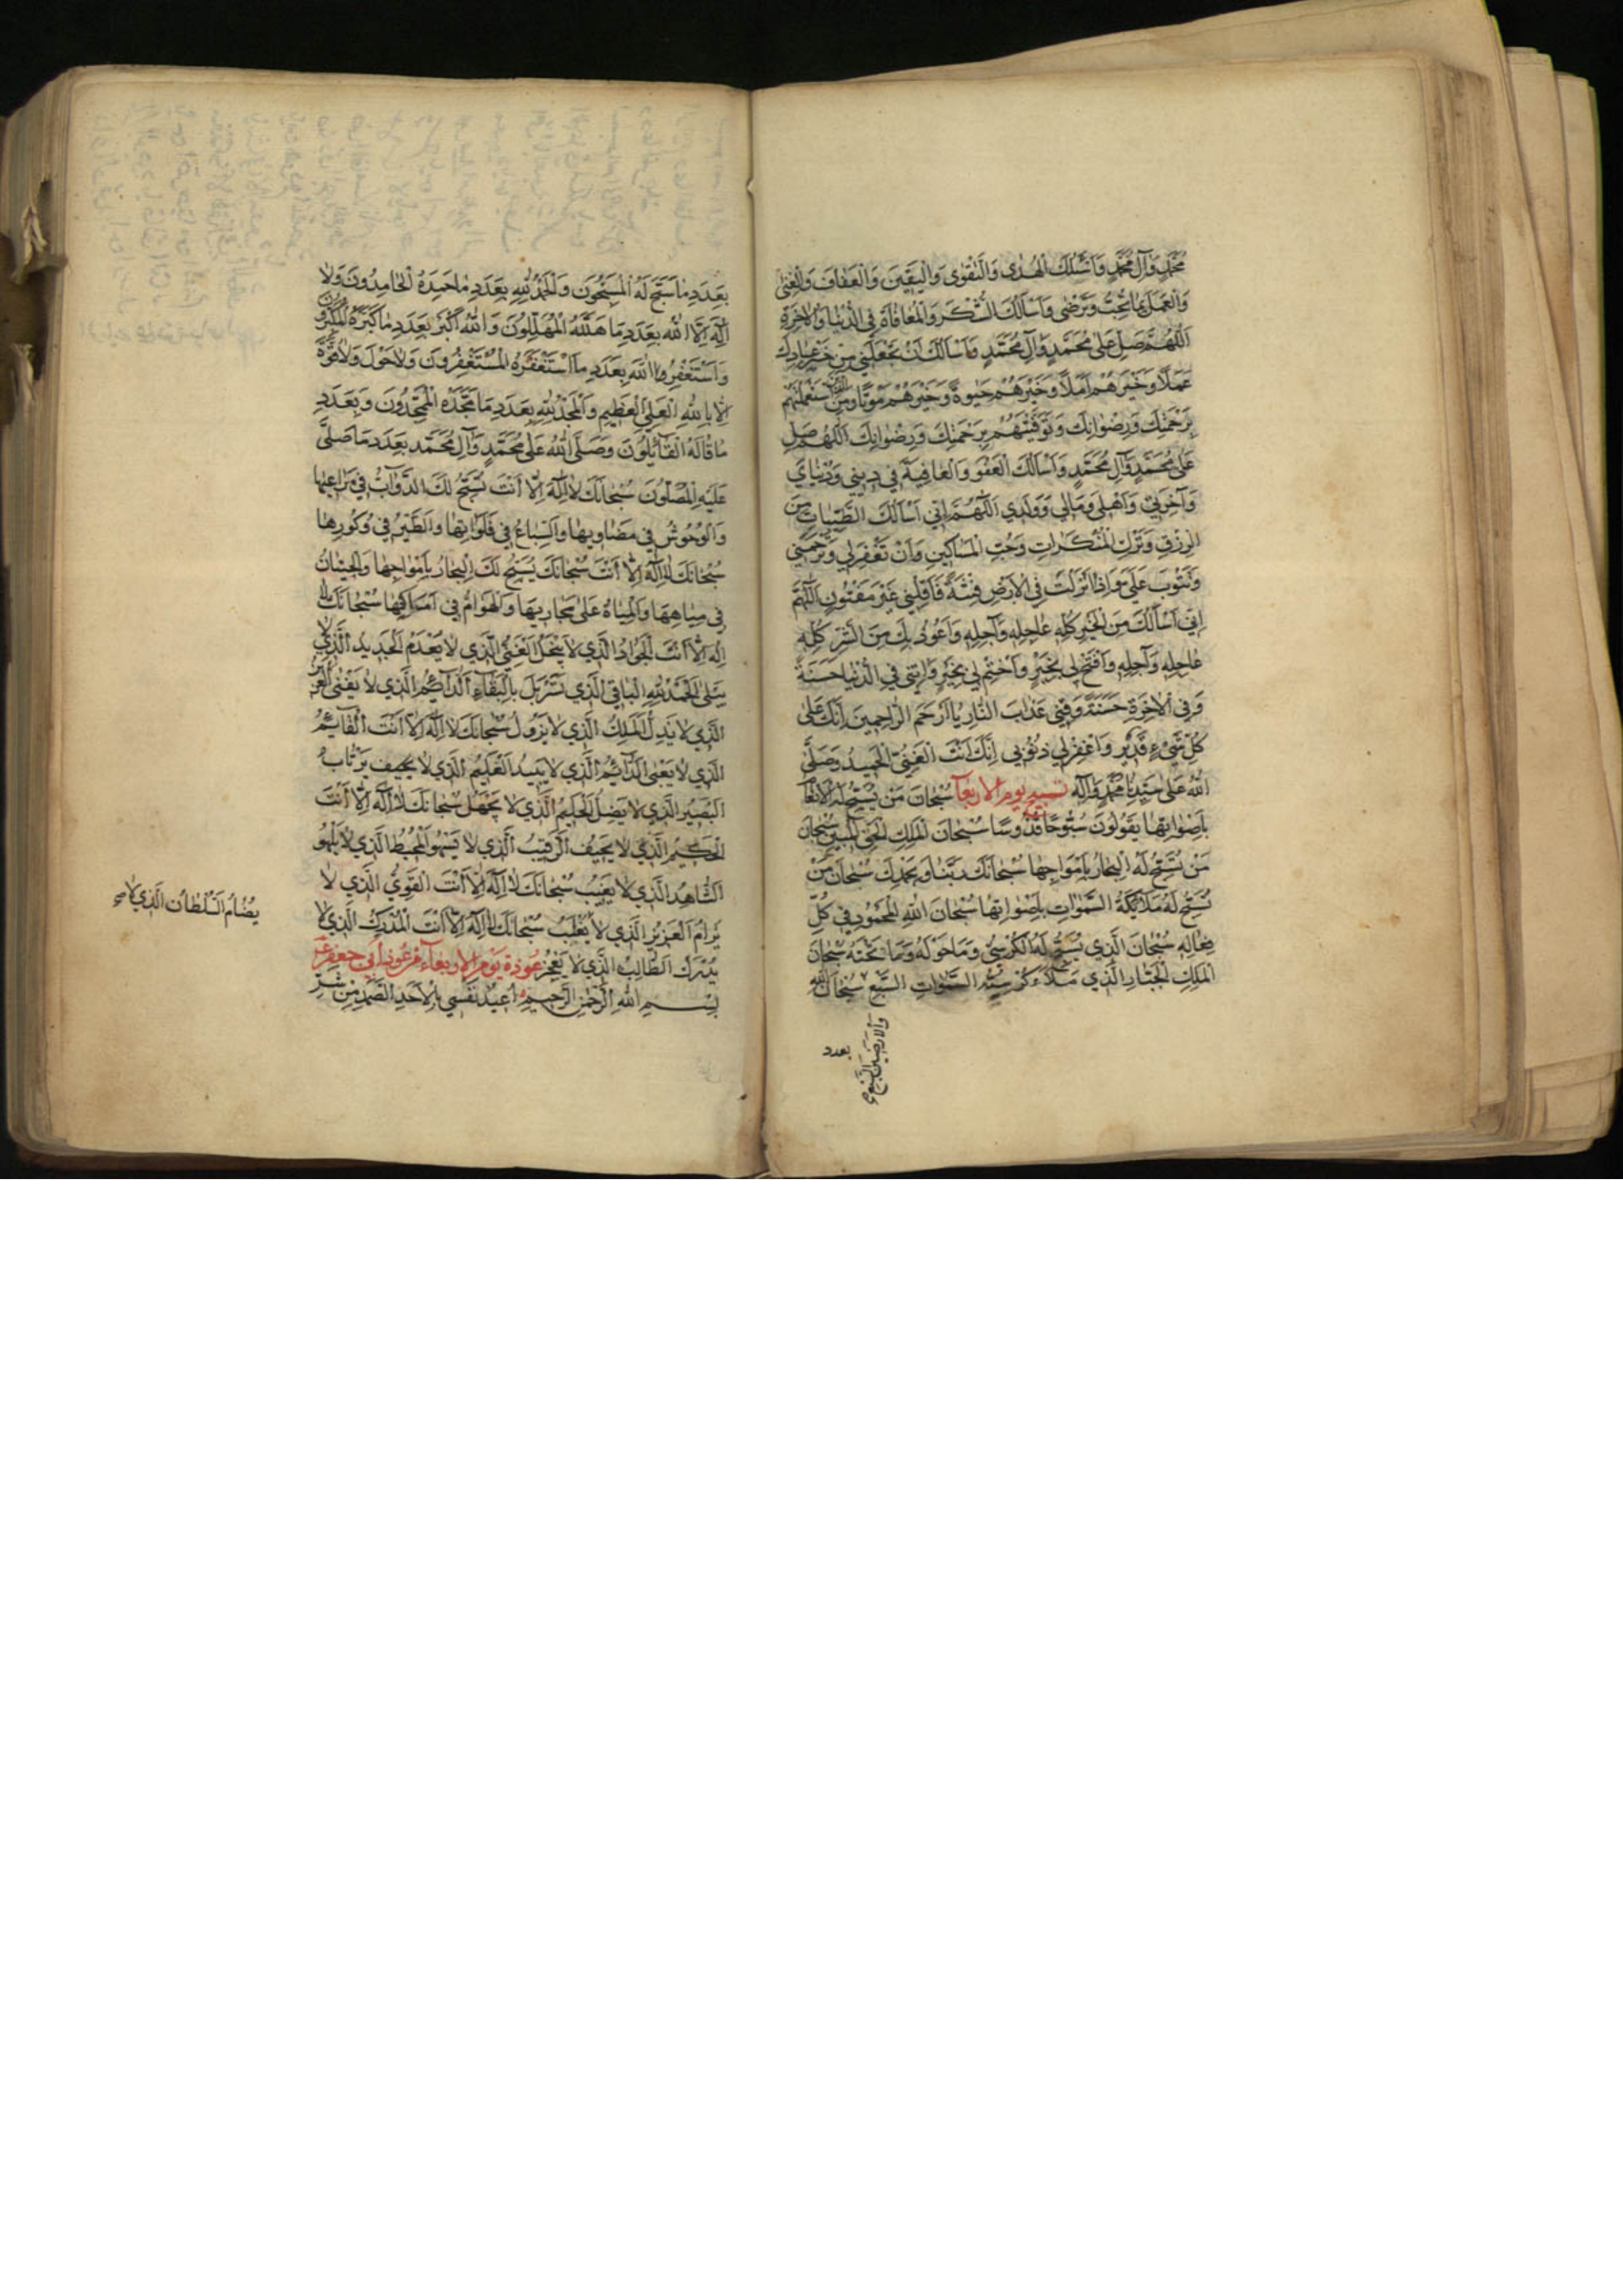 مُحَمَّدٍ وَآلِ مُحَمَّدٍ وَاَسْئَلُكَ الْهُدٰى وَالتَّقْوٰى وَالْيَقِينَ وَالْعَفافَ وَالْغِنٰى
وَالْعَمَلَ بِمَا تُحِبُّ وَتَرْضٰى وَاَسْاَلُكَ الشُّكْرَ وَالْمُعافاةَ فِى الدُّنْيا وَالْاٰخِرَةِ
اَللّٰهُمَّ صَلِّ عَلٰى مُحَمَّدٍ وَآلِ مُحَمَّدٍ وَاَسْاَلُكَ اَنْ تَجْعَلَنِي مِنْ خَيْرِ عِبادِكَ
عَمَلًا وَخَيْرِهِمْ اَمَلًا وَخَيْرِهِمْ حَيٰوةً وَخَيْرِهِمْ مَوْتًا وَمِنَ الَّذينَ تَسْتَعْمِلُهُمْ
بِرَحْمَتِكَ وَرِضْوانِكَ وَتَوَفَّيْتَهُمْ بِرَحْمَتِكَ وَرِضْوانِكَ اَللّٰهُمَّ صَلِّ
عَلٰى مُحَمَّدٍ وَآلِ مُحَمَّدٍ وَاَسْاَلُكَ الْعَفْوَ وَالْعافِيَةَ فِي دِينِي وَدُنْيايَ
وَآخِرَتِي وَاَهْلِي وَمالِي وَوَلَدِي اَللّٰهُمَّ اِنِّي اَسْاَلُكَ الطَّيِّباتِ مِنَ
الرِّزْقِ وَتَرْكَ الْمُنْكَراتِ وَحُبَّ الْمَساكِينِ وَاَنْ تَغْفِرَلِي وَتَرْحَمَنِي
وَتَتُوبَ عَلَيَّ وَاِذا اَنْزَلْتَ فِى الْاَرْضِ فِتْنَةً فَاَقْلِبْنِي غَيْرَ مَفْتُونٍ اَللّٰهُمَّ
اِنِّي اَسْاَلُكَ مِنَ الْخَيْرِ كُلِّهِ عاجِلِهِ وَآجِلِهِ وَاَعُوذُ بِكَ مِنَ الشَّرِّ كُلِّهِ
عاجِلِهِ وَآجِلِهِ وَافْتَحْ لِي بِخَيْرٍ وَاخْتِمْ لِي بِخَيْرٍ وَآتِنِي فِي الدُّنْيا حَسَنَةً
وَفِى الْاٰخِرَةِ حَسَنَةً وَقِنِي عَذابَ النّارِ يا اَرْحَمَ الرّاحِمِينَ اِنَّكَ عَلٰى
كُلِّ شَيْءٍ قَدِيرٌ وَاغْفِرْ لِي ذُنُوبِي اِنَّكَ اَنْتَ الْغَنِيُّ الْحَمِيدُ وَصَلَّى
اللّٰهُ عَلٰى سَيِّدِنا مُحَمَّدٍ وَآلِهِ تسبيح يوم الاربعآ سُبْحانَ مَنْ تُسَبِّحُ لَهُ الْاَنْعامُ
بِاَصْواتِها يَقُولُونَ سُبُّوحًا قُدُّوسًا سُبْحانَ الْمَلِكِ الْحَقِّ الْمُبِينِ سُبْحانَ
مَنْ تُسَبِّحُ لَهُ الْبِحارُ بِاَمْواجِها سُبْحانَكَ رَبَّنا وَبِحَمْدِكَ سُبْحانَ مَنْ
تُسَبِّحُ لَهُ مَلَائِكَةُ السَّمٰواتِ بِاَصْواتِها سُبْحانَ اللّٰهِ الْمَحْمُودِ فِي كُلِّ
فِعالِهِ سُبْحانَ الَّذِي يُسَبِّحُ لَهُ الْكُرْسِيُّ وَمَا حَوْلَهُ وَمَا تَحْتَهُ سُبْحانَ
الْمَلِكِ الْجَبّارِ الَّذِي مَلَاَ كُرْسِيُّهُ السَّمٰواتِ السَّبْعَ سُبْحانَ اللّٰهِ
وَالْاَرَضِينَ السَّبْعَ
بعدد
بِعَدَدِ مَا سَبَّحَ لَهُ الْمُسَبِّحُونَ وَالْحَمْدُ لِلّٰهِ بِعَدَدِ مَا حَمِدَهُ الْحامِدُونَ وَلَا
اِلٰهَ اِلَّا اللّٰهُ بِعَدَدِ مَا هَلَّلَهُ الْمُهَلِّلُونَ وَاللّٰهُ اَكْبَرُ بِعَدَدِ مَا كَبَّرَهُ الْمُكَبِّرُونَ
وَاَسْتَغْفِرُ اللّٰهَ بِعَدَدِ مَا اسْتَغْفَرَهُ الْمُسْتَغْفِرُونَ وَلَا حَوْلَ وَلَا قُوَّةَ
اِلَّا بِاللّٰهِ الْعَلِيِّ الْعَظِيمِ وَالْمَجْدُ لِلّٰهِ بِعَدَدِ مَا مَجَّدَهُ الْمُمَجِّدُونَ وَبِعَدَدِ
مَا قَالَهُ الْقَائِلُونَ وَصَلَّى اللّٰهُ عَلٰى مُحَمَّدٍ وَآلِ مُحَمَّدٍ بِعَدَدِ مَا صَلَّى
عَلَيْهِ الْمُصَلُّونَ سُبْحانَكَ لَا اِلٰهَ اِلَّا اَنْتَ تُسَبِّحُ لَكَ الدَّوَآبُّ فِي مَراعِيها
وَالْوُحُوشُ فِي مَضَاوِيها وَالسِّباعُ فِي فَلَوَاتِها وَالطَّيْرُ فِي وُكُورِها
سُبْحانَكَ لَا اِلٰهَ اِلَّا اَنْتَ سُبْحانَكَ يُسَبِّحُ لَكَ الْبِحارُ بِاَمْواجِها وَالْحِيتانُ
فِي مِياهِهَا وَالْمِياهُ عَلٰى مَجارِيهَا وَالْهَوَامُّ فِي اَمَاكِنِها سُبْحانَكَ لَا
اِلٰهَ اِلَّا اَنْتَ الْجَوَادُ الَّذِي لَا يَبْخَلُ الْغَنِيُّ الَّذِي لَا يَعْدَمُ الْجَدِيدُ الَّذِي لَا
يَبْلٰى اَلْحَمْدُ لِلّٰهِ الْباقِي الَّذِي تَسَرْبَلَ بِالْبَقَاءِ الدَّائِمُ الَّذِي لَا يَفْنٰى الْعَزِيزُ
الَّذِي لَا يَذِلُّ الْمَلِكُ الَّذِي لَا يَزُولُ سُبْحانَكَ لَا اِلٰهَ اِلَّا اَنْتَ الْقَائِمُ
الَّذِي لَا يَعْيٰى الدَّائِمُ الَّذِي لَا يَبِيدُ الْعَلِيمُ الَّذِي لَا
الْبَصِيرُ الَّذِي لَا يَضِلُّ الْحَلِيمُ الَّذِي لَا يَجْهَلُ سُبْحانَكَ لَا اِلٰهَ اِلَّا اَنْتَ
الْحَكِيمُ الَّذِي لَا يَحِيفُ الرَّقِيبُ الَّذِي لَا يَسْهُو الْمُحِيطُ الَّذِي لَا يَلْهُو
الشّاهِدُ الَّذِي لَا يَغِيبُ سُبْحانَكَ لَا اِلٰهَ اِلَّا اَنْتَ الْقَوِيُّ الَّذِي لَا
يُرَامُ الْعَزِيزُ الَّذِي لَا يُغْلَبُ سُبْحانَكَ لَا اِلٰهَ اِلَّا اَنْتَ الْمُدْرِكُ الَّذِي لَا
يُدْرَكُ الطّالِبُ الَّذِي لَا يَعْجِزُ عُوذَة يَوْمِ الاربعآء من عُوَذِ اَبي جعفر ع
بِسْمِ اللّٰهِ الرَّحْمٰنِ الرَّحِيمِ اُعِيذُ نَفْسِي بِالْاَحَدِ الصَّمَدِ مِنْ شَرِّ
يُضَامُ السُّلْطانُ الَّذِي لَا صح